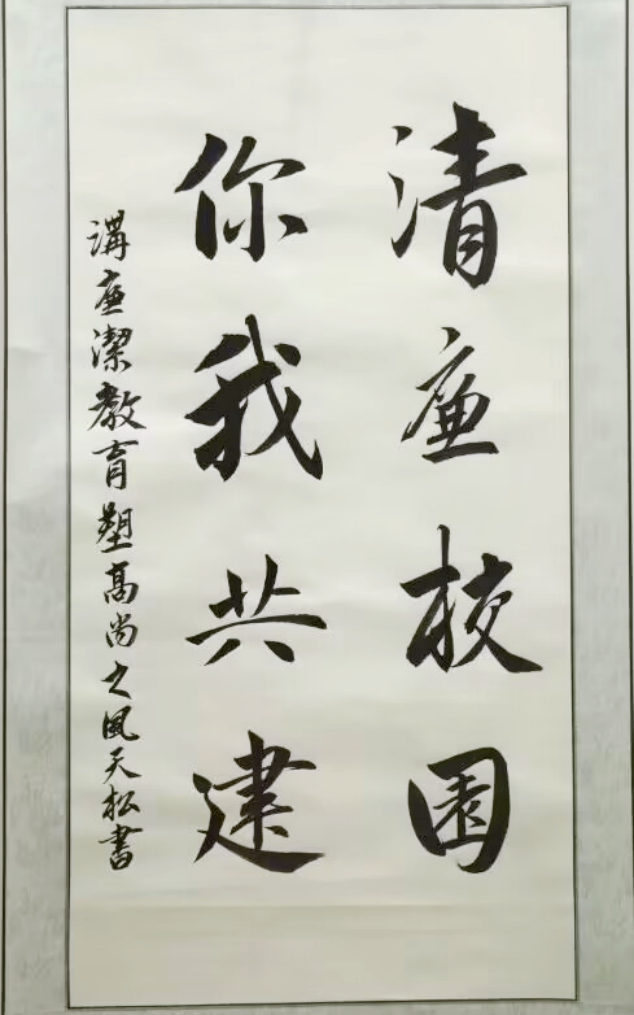 清廉校園
你我共建
講廉潔教育塑高尚之風天松書